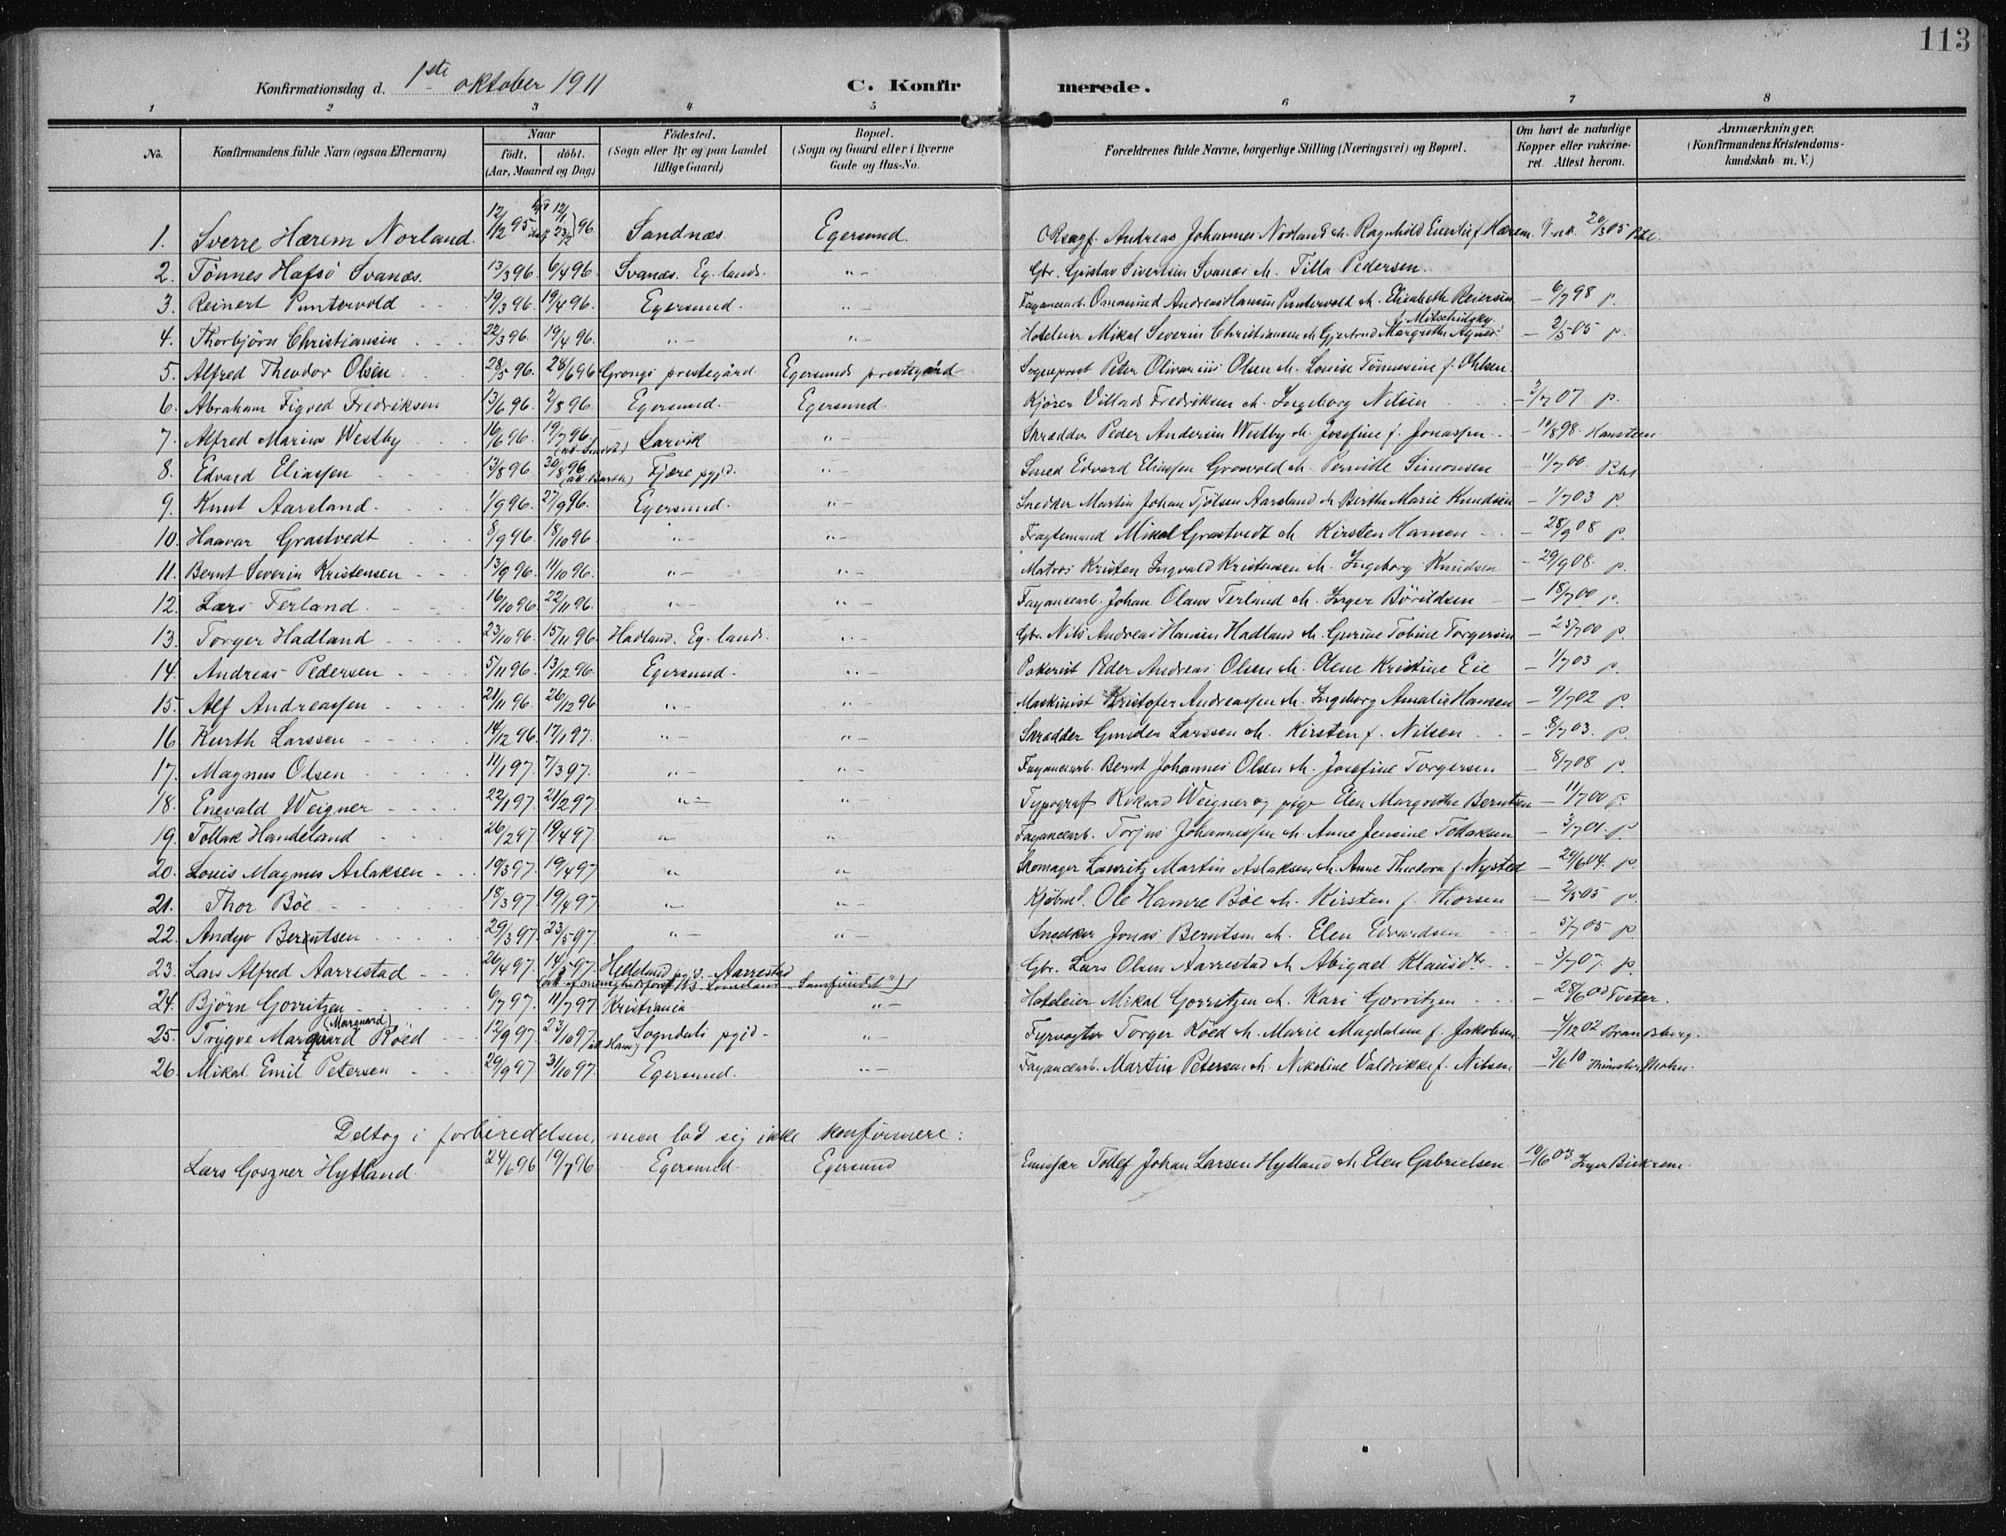 113
Konfirmationsdag d. 1ste oktober 1911 C. Konfirmerede.
1 2 3 4 5 6 7 8
No. Konfirmandens fulde Navn (ogsaa Efternavn) Naar født. døbt. (Aar, Maaned og Dag) Fødested. (Sogn eller By og paa Landet tillige Gaard) Bopæl. (Sogn og Gaard eller i Byerne Gade og Hus-No. Forældrenes fulde Navne, borgerlige Stilling (Næringsvei) og Bopæl. Om havt de naturlige Kopper eller vakcineret. Attest herom. Anmærkninger. (Konfirmandens Kristendomskundskab m. V.)
1. Sverre Hærem Norland 12/12 95 Sandnæs Egersund. Andreas Johannes Norland & Ragnhild f. Hærem 20/3 05
2. Tønnes Hafsö Svanæs. 13/3 96 6/4 96 Svanæs. Eg. lands. " - Gbr. Gustav Sivertsen Svanæs & Tilla Pedersen.
3. Reinert Puntervold 19/3 96. 19/4 96. Egersund. " - Fayancearb. Osmund Andreas Hansen Puntervold & Elisabeth Reiersen - 6/7 98 p.
4. Thorbjörn Christiansen 22/3 96. 19/4 96. " - " - Hoteleier Mikal Severin Christiansen & Gjertrud Margrethe Agnes f. Mitschidzky - 2/5 05 p.
5. Alfred Theodor Olsen 28/5 96. 28/6 96 Grongs prestegård Egersunds prestegård Sogneprest Peter Olivarius Olsen & Louise Tönnesine f. Ohlsen.
6. Abraham Figved Fredriksen 13/6 96. 2/8 96. Egersund. Egersund. Kjörer Villads Fredriksen & Ingeborg Nilsen - 2/7 07 p.
7. Alfred Marius Westby 16/6 96. 19/7 96. Larvik " - Skrædder Peder Andersen Westby & Josefine f. Jonassen - 18/8 98. Hansteen
8. Edvard Eliassen 13/8 96. 30/8 96 Fjære pgjd. " - Smed Edvard Eliassen Groswold & Pernille Simonsen - 11/7 00
9. Knut Aarsland 1/9 96. 27/9 96. Egersund. " - Snedker Martin Johan Tjölsen Aarsland & Berthe Marie Knudsen - 1/7 03 p.
10. Haavar Grastvedt 8/9 96. 18/10 96 " - " - Fragtemand Mikal Grastvedt & Kirsten Hansen - 28/9 08 p.
11. Bernt Severin Kristensen 13/9 96. 11/10 96. " - " - Matros Kristen Ingvald Kristensen & Ingeborg Knudsen - 29/9 08. p.
12. Lars Terland 16/10 96. 22/11 96. " - " - Fayancearb. Johan Olaus Terland & Inger Börildsen - 18/7 00 p.
13. Torger Hadland 23/10 96. 15/11 96 Hadland. Eg. lands. " - Gbr. Nils Andreas Hansen Hadland & Gurine Tobine Torgersen - 25/7 00 p.
14. Andreas Pedersen 5/11 96. 13/12 96. Egersund. " - Peder Andreas Olsen & Olene Kristine Eie - 1/7 03 p.
15. Alf Andreassen 21/11 96. 26/12 96 " - " - Maskinist Kristofer Andreassen & Ingeborg Amalie Hansen - 9/7 02 p.
16 Kurth Larssen 14/12 96. 17/1 97. " - " - Skrædder Gunder Larssen & Kirsten f. Nilsen - 8/7 03. p.
17. Magnus Olsen 11/1 97. 7/3 97. " - " - Fayancearb. Bernt Johannes Olsen & Josefine Torgersen - 8/7 08 p.
18. Enevald Weigner 22/1 97. 21/2 97. " - " - Typograf Rikard Weigner og pige Elen Margrethe Berntsen - 11/7 00 p.
19. Tollak Handeland 26/2 97. 19/4 97. " - " - Fayancearb. Torjus Johannessen & Anne Jensine Tollaksen - 3/7 01. p
20. Louis Magnus Aslaksen 19/3 97. 19/4 97 " " Skomager Lauritz Martin Aslaksen & Anne Theodora f. Nysted - 29/6 04. p.
21. Thor Böe 18/3 97. 19/4 97. " - " - Kjöbmd. Ole Hamre Böe & Kirsten f. Thorsen - 2/5 05 p.
22. Andyv Berntsen 29/3 97. 23/5 97. " - " - Snedker Jonas Berntsen & Elen Edvardsen 5/7 05 p.
23. Lars Alfred Aarrestad 26/4 97. 14/5 97. Helleland pgjd. Aarrestad Gbr. Lars Olsen Aarrestad & Abigael Klausdtr. - 3/7 07. p.
24. Björn Gorritzen 6/7 97. 11/7 97 Kristiania " - Hoteleier Mikal Gorritzen & Kari Gorritzen
25. Trygve Marquard (Marquard) Röed 12/9 97. 23/10 97. Sogndals pgjd. " - Fyrvogter Torger Röed & Marie Magdalene f. Jakobsen - 4/12 02 Brandsberg.
26. Mikal Emil Petersen 29/9 97 31/10 97. Egersund. " - Fayancearb. Martin Petersen & Nikoline Valdrikke f. Nilsen - 3/6 10
Deltog i forberedelsen, men lod sig ikke konfirmere:
Lars Goszner Hytland 24/6 96 19/7 96 Egersund. Egersund Emissær Tollef Johan Larsen Hytland & Elen Gabrielsen 19/6 03.